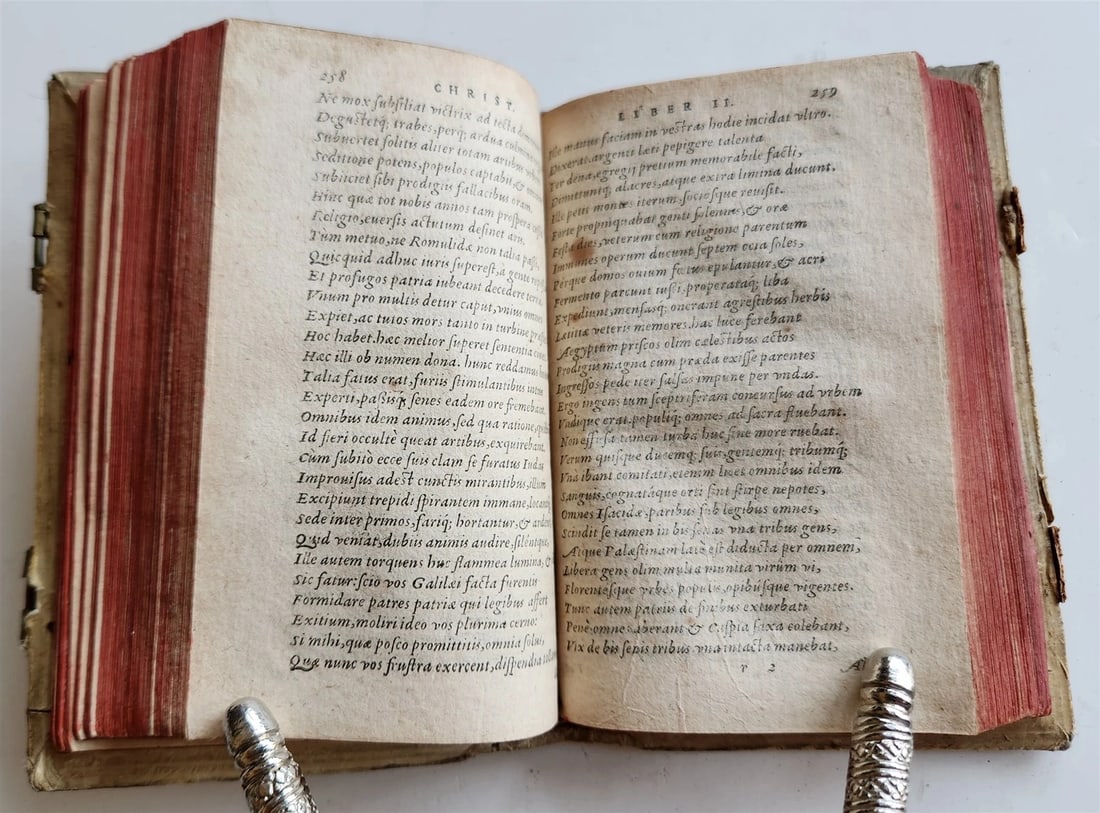 258
CHRIST.
Ne mox subsiliat victrix ad tecta
Degustetq; trabes, perq; ardua
Subuertet solitis aliter totam artibus
Seditione potens, populos captabit, &
Subijciet sibi prodigijs fallacibus
Hinc quæ tot nobis annos tam prospera
Religio, euersis actutum desinet aris.
Tum metuo, ne Romulidæ non talia passi,
Quicquid adhuc iuris superest, à gente
Et profugos patria iubeant decedere
Vnum pro multis detur caput, vnius
Expiet, ac tutos mors tanto in turbine
Hoc habet. hæc melior superet sententia
Hæc illi ob numen dona. hunc reddamus
Talia fatus erat, furijs stimulantibus
Experti, paßisq́; senes eadem ore fremebant.
Omnibus idem animus, sed qua ratione,
Id fieri occultè queat artibus, exquirebant.
Cum subitò ecce suis clam se furatus Iudas
Improuisus adest cunctis mirantibus, illum
Excipiunt trepidi spirantem immane,
Sede inter primos, fariq; hortantur, &
Quid veniat, dubijs animis audire,
Ille autem torquens huc flammea lumina,
Sic fatur: scio vos Galilæi facta furentis
Formidare patres patriæ qui legibus affert
Exitium, moliri ideo vos plurima cerno:
Si mihi, quæ posco promittitis, omnia soluo,
Quæ nunc vos frustra exercent, dispendia
LIBER II.
259
Ille manus faciam in vestras hodie incidat vltro.
Dixerat. argenti læti pepigere talenta
Ter dena, egregij pretium memorabile facti,
Demittuntq; alacres, atque extra limina ducunt.
Ille petit montes iterum, sociosque reuisit.
Forte propinquabat genti solennis, & oræ
Festa dies, veterum cum religione parentum
Immunes operum ducunt septem ocia soles,
Perque domos ouium fœtus epulantur, & acri
Fermento parcunt iussi, properataq; liba
Expediunt, mensasq; onerant agrestibus herbis
Lætitiæ veteris memores. hac luce ferebant
Aegyptum priscos olim cælestibus actos
Prodigijs magna cum præda exisse parentes
Ingressos pede iter salsas impune per vndas.
Ergo ingens tum sceptriferam concursus ad vrbem
Vndique erat. populiq; omnes ad sacra fluebant.
Non effusa tamen turba huc sine more ruebat.
Verum quisque ducemq; suum, gentemq; tribumq́;
Vnà ibant comitati, etenim licet omnibus idem
Sanguis, cognatáque orti sint stirpe nepotes,
Omnes Isacidæ, paribus sub legibus omnes,
Scindit se tamen in bis senas vna tribus gens,
Atque Palæstinam latè est diducta per omnem,
Libera gens olim, multa munita virûm vi,
Florentesque vrbes populis, opibúsque vigentes.
Tunc autem patrijs de finibus exturbati
Penè omnes aberant & Caspia saxa colebant,
Vix de bis senis tribus vna intacta manebat,
r 2